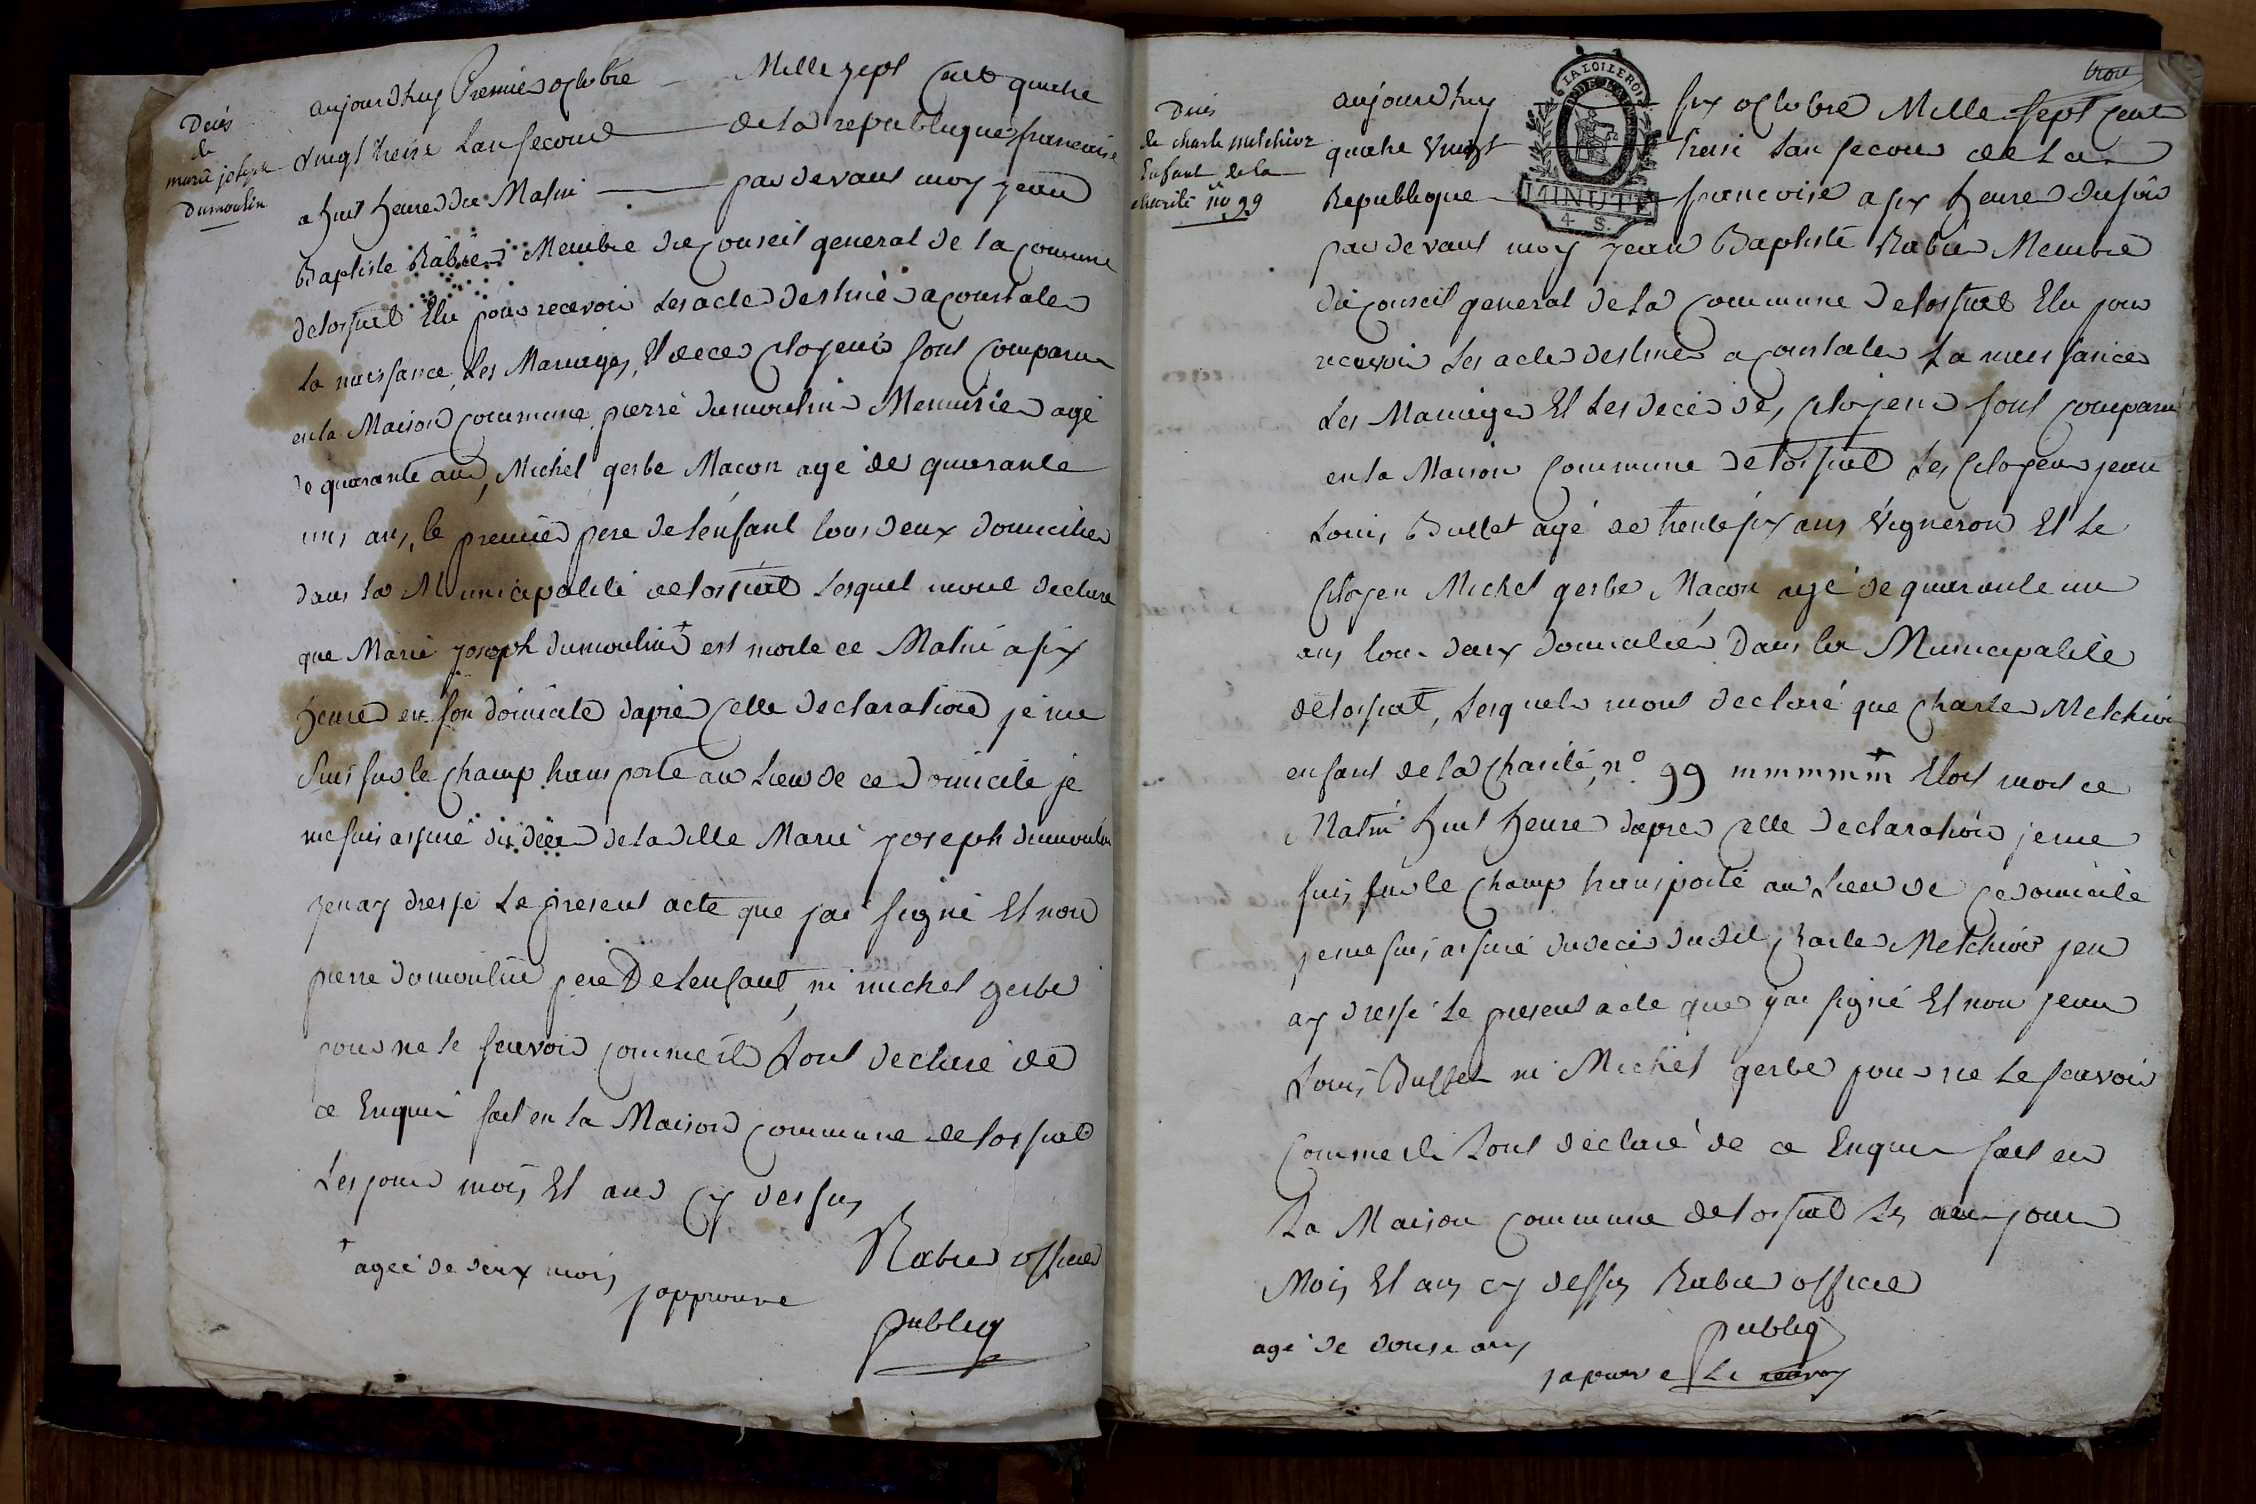 Deces
de
marie joseph
Dumoulin
aujourdhuy Premier octobre Mille sept cent quatre
vingt treize Lan second de la republique francoise
a huit heure du Matin par devant moy jean
Baptiste Rabier Membre du Conseil general de la Commune
Elu pour recevoir Les acte destiné a constater
La naissance, Les Mariages, Et deces citoyens sont comparu
en la Maison commune pierre dumoulin Menusier agé
de quarante ans, Michel gerbe Macon agé de quarante
uns ans, le premier pere de lenfant tous deux domicilié
dans la Municipalité Lesquel mont declaré
que Marie joseph dumoulin + est morte ce Matin a six
heure en son domicile dapres cette declaration je me
suis sur le champ transporté au Lieu de ce domicile je
me suis assuré du décé de ladille Marie joseph dumoulin
jen ay dressé Le present acte que jai signé Et non
pierre dumoulin pere De Lenfant, ni michel gerbe
pour ne le scavoir comme ils Lont declaré de
ce Enquis fait en La Maison commune
Les jour mois Et ans cy dessus
Rabier officier
publiq
+ ageé de deux mois
japprouve
trois
Deces
de charle melchior
Enfant de la
charité no 99
LA LOI LE ROI
MINUTE
4. S.
aujourdhuy six octobre Mille sept cent
quatre vingt treise Lan second de La
Republique francoise a six heure du soir
par devant moy jean Baptiste Rabier Membre
du conseil general de la Commune Elu pour
recevoir Les acte destiné a constater La naissance
Les Mariage Et Les decé des citoyens sont comparu
en la Maison Commune Les citoyens jean
Louis Bullet agé de trente six ans Vigneron Et Le
Citoyen Michel gerbe Macon agé de quarante un
ans tous deux domicilié Dans la Municipalité
Lesquels mont declaré que Charles Melchior
enfant de la Charité, no 99 mmmmmm + Etoit mort ce
Matin huit heure dapres cette declaration je me
suis sur le champ transporté au Lieu de ce domicile
je me suis assuré du decés du dit charles Melchior jen
ay dressé Le present acte que jai signé Et non jean
Louis Bullet ni Michel gerbe pour ne Le scavoir
Comme ils Lont declaré de ce Enquis fait en
La Maison commune Les jour
Mois Et ans cy dessus Rabier officier
publiq
agé de douse ans
japrouve Le renvoy